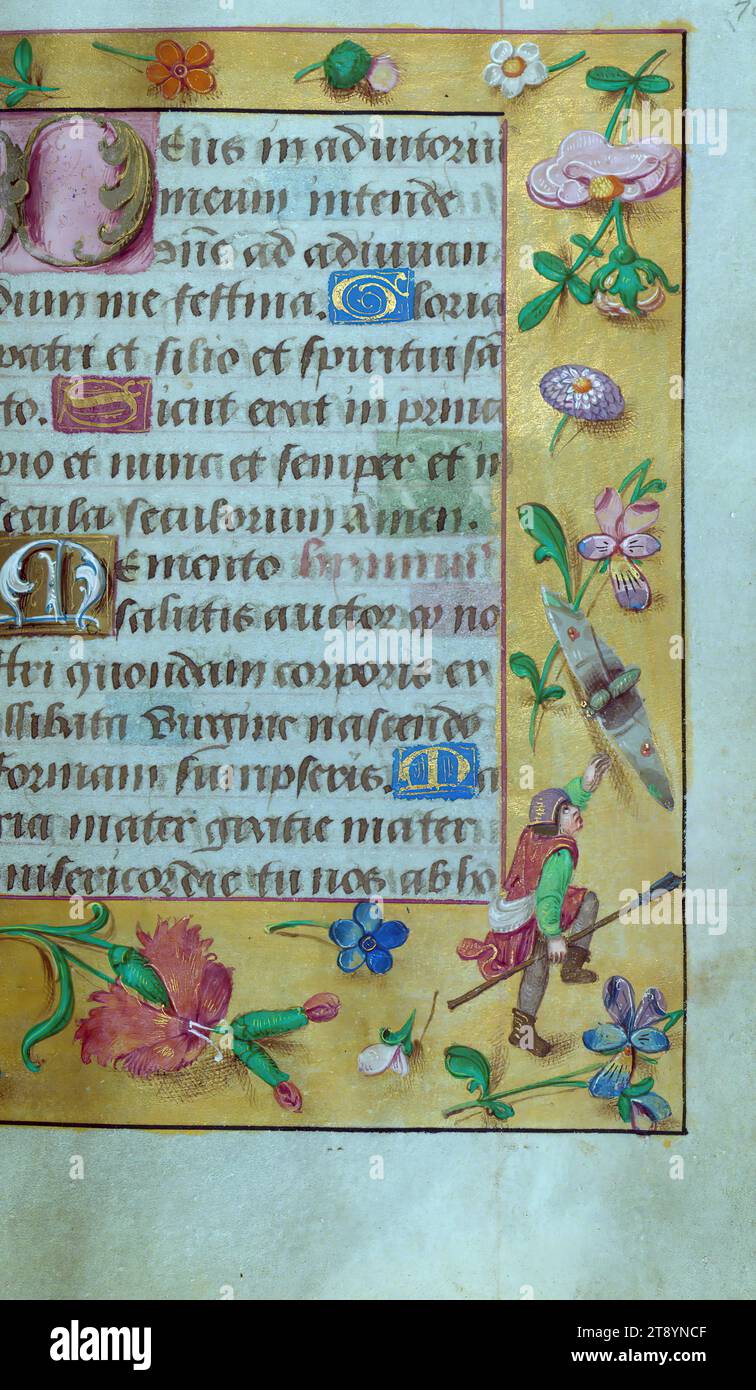 Deus in adiutoriu
meum intende
One ad adiuuan
dum me festina. Gloria
patri et filio et spiritui sa
to. Sicut erat in princi
pio et nunc et semper et in
secula seculorum amen.
Memento
salutis auctor no
stri quondam corporis ex
illibata Virgine nascendo
formam sumpseris. Ma
ria mater gratie mater
misericordie tu nos ab ho
alamy
Image ID: 2T8YNCF
www.alamy.com